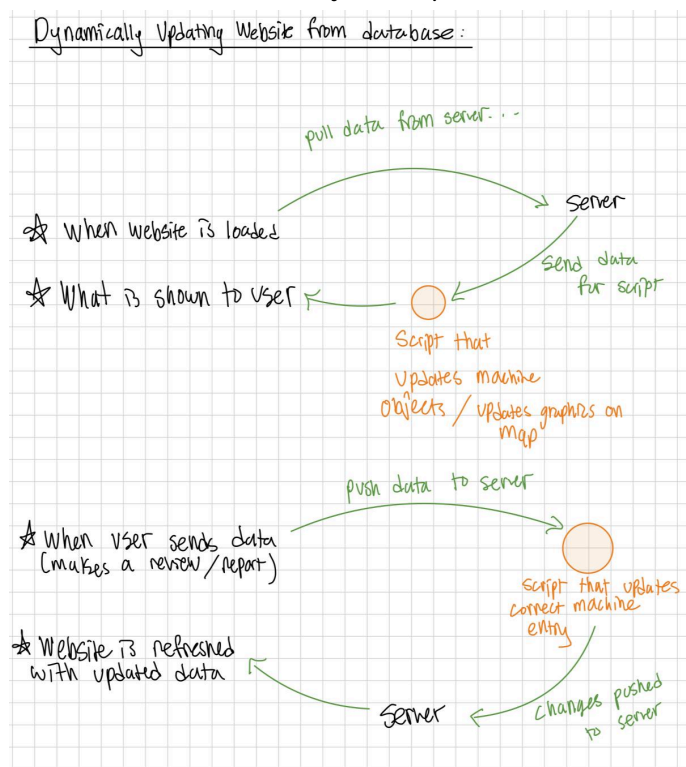 Dynamically Updating Website from database:
pull data from server...
server
☆ When website is loaded
send data
for script
☆ What is shown to user
Script that
updates machine
objects / updates graphics on
map
push data to server
☆ When user sends data
(makes a review/report)
script that updates
correct machine
entry
☆ Website is refreshed
with updated data
changes pushed
to server
server